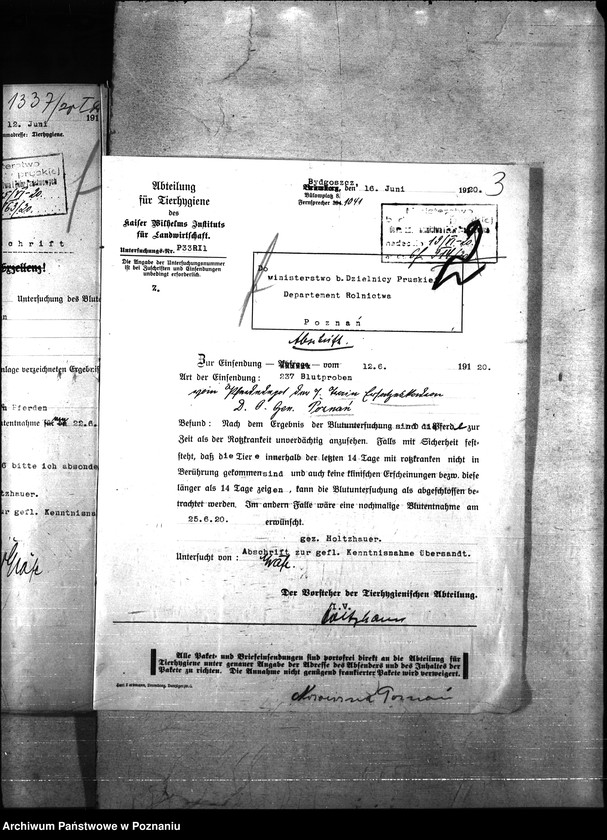 1337/20 I
191
12. Juni
Tierhygiene.
chrift
Exzellenz!
Untersuchung des Blute
nlage verzeichneten Ergebnis
Pferden
tentnahme 22.6.
6 bitte ich absonde
ltzhauer.
ur gefl. Kenntnisna
Gräfe
3
Abteilung
für Tierhygiene
des
Kaiser Wilhelms Instituts
für Landwirtschaft.
Untersuchungs-Nr. P33RI1
Die Angabe der Untersuchungsnummer
ist bei Zuschriften und Einsendungen
unbedingt erforderlich.
Z.
Bydgoszcz,
Bromberg, den 16. Juni 1920.
Bülowplatz 8.
Fernsprecher 1041
Do
Ministerstwo b.Dzielnicy Pruskie
Departement Rolnictwa
Poznań
Abschrift.
Zur Einsendung — vom 12.6. 19120.
Art der Einsendung: 237 Blutproben
vom Pferdedepot des 7.
D. O. Gen. Poznań
Befund: Nach dem Ergebnis der Blutuntersuchung sind die Pferde zur
Zeit als der Rotzkrankheit unverdächtig anzusehen. Falls mit Sicherheit fest-
steht, daß die Tiere innerhalb der letzten 14 Tage mit rotzkranken nicht in
Berührung gekommen sind und auch keine klinischen Erscheinungen bezw. diese
länger als 14 Tage zeigen, kann die Blutuntersuchung als abgeschlossen be-
trachtet werden. Im andern Falle wäre eine nochmalige Blutentnahme am
25.6.20. erwünscht.
gez. Holtzhauer.
Abschrift zur gefl. Kenntnisnahme übersandt.
Untersucht von: Gräfe.
Der Vorsteher der Tierhygienischen Abteilung.
I.V.
Holtzhauer
Alle Paket- und Briefeinsendungen sind portofrei direkt an die Abteilung für
Tierhygiene unter genauer Angabe der Adresse des Absenders und des Inhaltes der
Pakete zu richten. Die Annahme nicht genügend frankierter Pakete wird verweigert.
Poznań
Archiwum Państwowe w Poznaniu